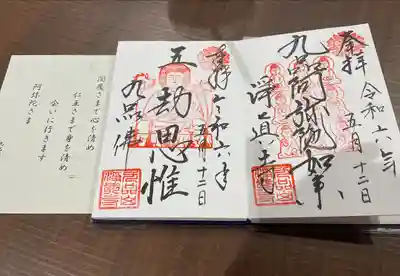 奉拝 令和六年
五月十二日
九品阿弥陀如来
浄真寺
奉拝 令和六年
五月十二日
五劫思惟
九品佛
閻魔さまで心を清め
仁王さまで身を清め
会いに行きます
阿弥陀さま